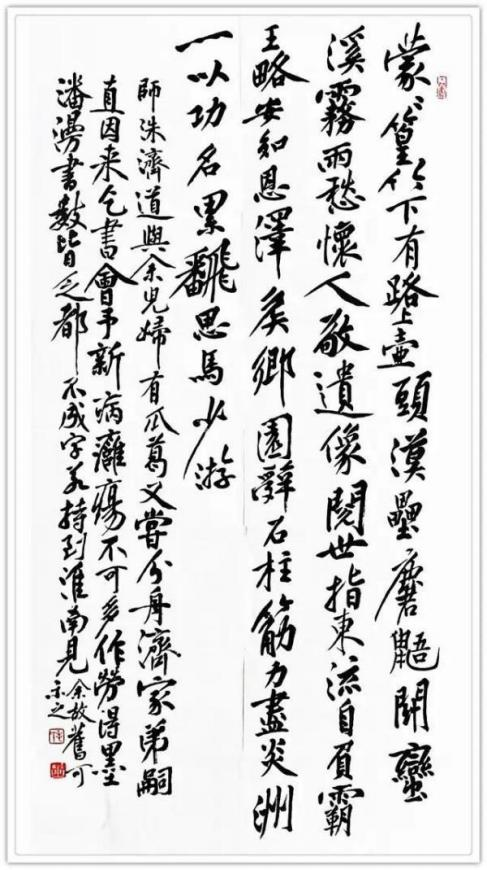 蒙〻篁竹下有路上壺頭漢壘麏鼯閗蠻
溪霧雨愁懷人敬遺像閱世指東流自負霸
王略安知恩澤侯鄉園辭石柱筋力盡炎洲
一以功名累飜思馬少游
師洙濟道與余兒婦有瓜葛又嘗分舟濟家弟嗣
直因来乞書會予新病癰瘍不可多作勞得墨
潘漫書數皆乏都不成字若持到淮南見
余故舊可
示之